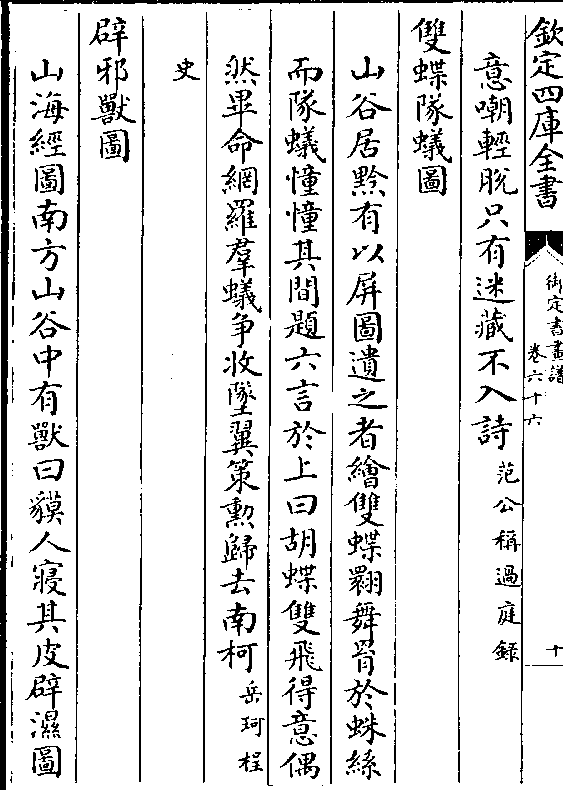 欽定四庫全書
御定書畫譜
卷六十六
十
意嘲輕脫只有迷藏不入詩范公稱過庭錄
雙蝶隊蟻圖
山谷居黔有以屏圖遺之者繪雙蝶翾舞罥於蛛絲
而隊蟻憧憧其間題六言於上曰胡蝶雙飛得意偶
然畢命網羅羣蟻争收墜翼策勲歸去南柯岳珂桯
史
辟邪獸圖
山海經圖南方山谷中有獸曰貘人寢其皮辟濕圖